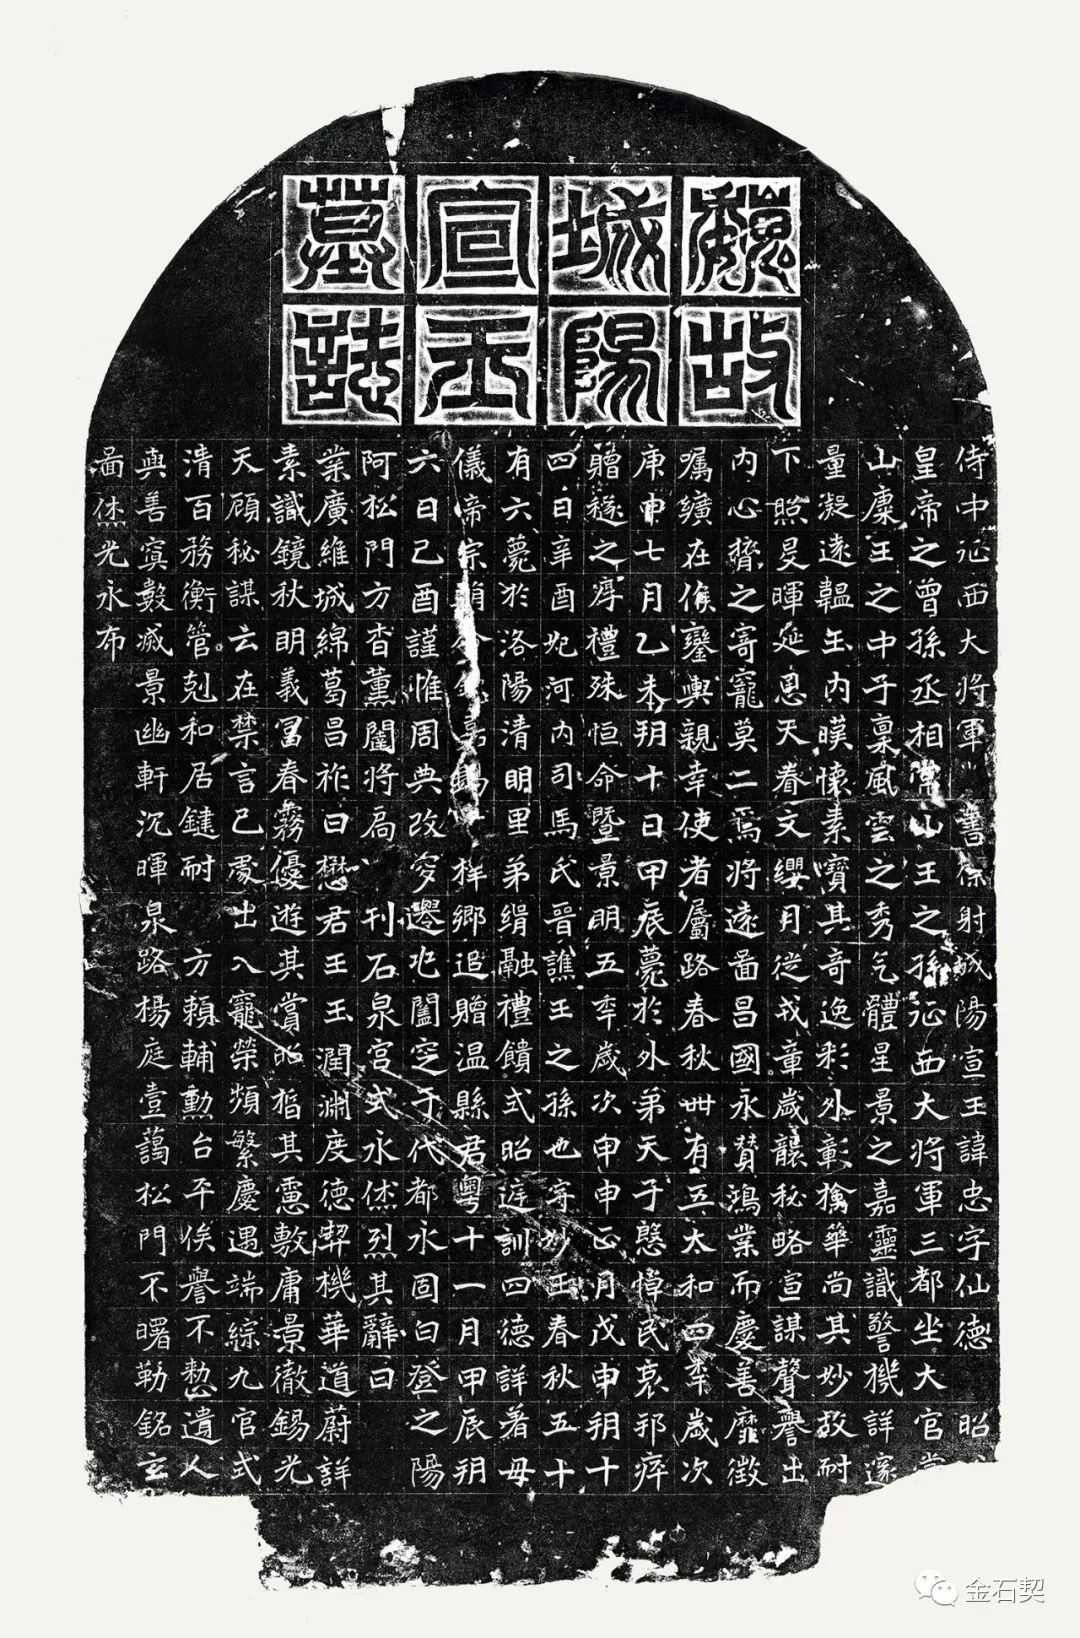 魏故
城陽
宣王
墓誌
侍中征西大將軍書僕射城陽宣王諱忠字仙德昭
皇帝之曾孫丞相常山王之孫征西大將軍三都坐大官常
山康王之中子稟風雲之秀气體星景之嘉靈識警機詳邃
量凝遠韞玉内暎懷素寶其奇逸彩外彰擒華尚其妙故耐
下照旻暉延恩天眷文纓月徙戎章歲襲秘略宣謀聲譽出
内心膂之寄寵莫二焉將遠啚昌國永贊鴻業而慶善靡徵
嘱纊在俟鑾輿親幸使者屬路春秋卌有五太和四年歲次
庚申七月乙未朔十日甲辰薨於外第天子慜悼民哀邦瘁
贈襚之厚禮殊恒命暨景明五年歲次申申正月戊申朔十
四日辛酉妃河内司馬氏晉譙王之孫也春秋五十
有六薨於洛陽清明里弟緝融禮饋式昭遐訓四德詳著母
儀帝宗嘉錫梓鄉追贈温縣君粵十一月甲辰朔
六日己酉謹惟周典改穸遷兆闔窆于代都永固白登之陽
阿松門方杳薰闥將扃刊石泉宮式永烋烈其辭曰
業廣維城綿葛昌祚曰懋君王玉潤淵度德契機華道蔚詳
素識鏡秋明義冨春霧優遊其賞昭其慮敷庸景徹錫光
天顧秘謀云在禁言已處出入寵榮頻繁慶遇端綜九官式
清百務衡管剋和居鍵耐方賴輔勳台平俟譽不憖遺人
與善寞數滅景幽軒沉暉泉路楊庭壹藹松門不曙勒銘玄
啚烋光永布
金石契